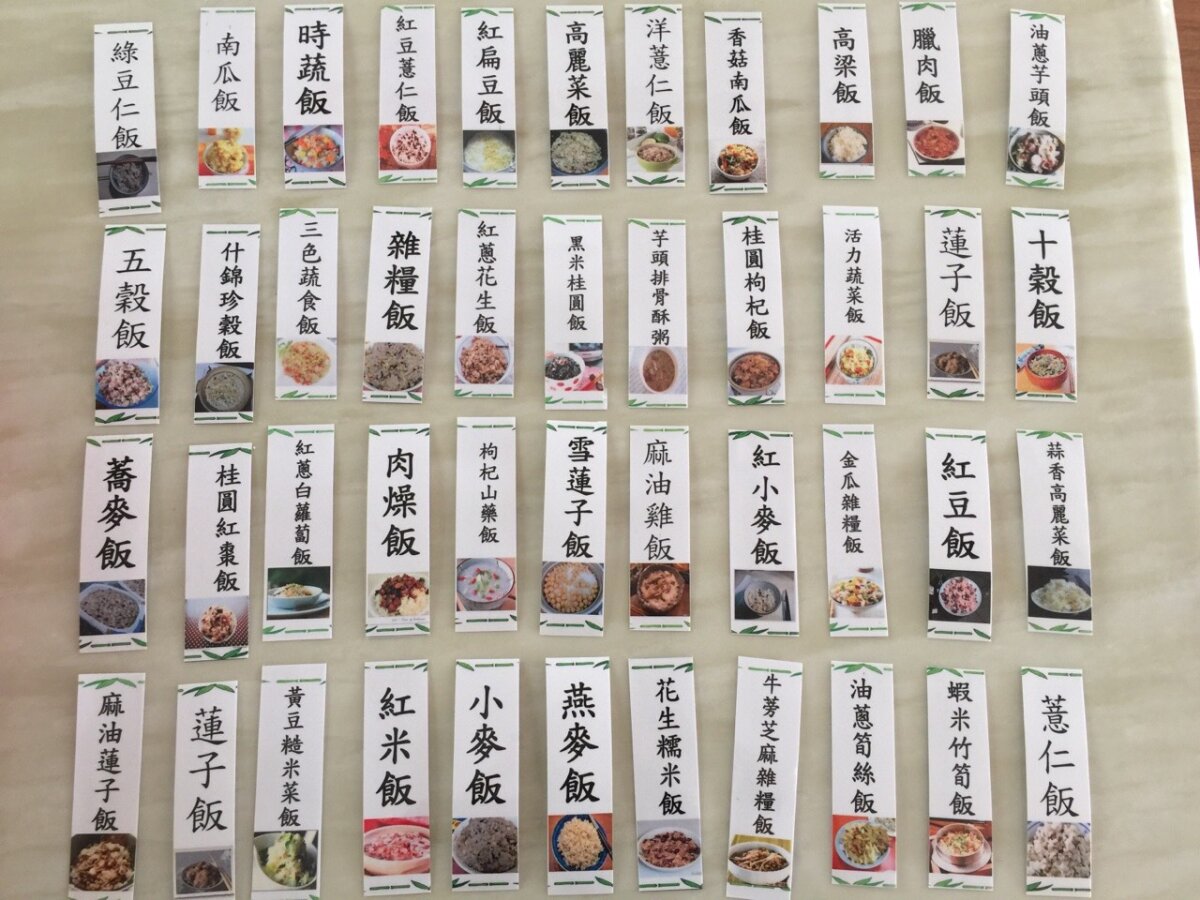 綠豆仁飯
南瓜飯
時蔬飯
紅豆薏仁飯
紅扁豆飯
高麗菜飯
洋薏仁飯
香菇南瓜飯
高梁飯
臘肉飯
油蔥芋頭飯
五穀飯
什錦珍穀飯
三色蔬食飯
雜糧飯
紅蔥花生飯
黑米桂圓飯
芋頭排骨酥粥
桂圓枸杞飯
活力蔬菜飯
蓮子飯
十穀飯
蕎麥飯
桂圓紅棗飯
紅蔥白蘿蔔飯
肉燥飯
枸杞山藥飯
雪蓮子飯
麻油雞飯
紅小麥飯
金瓜雜糧飯
紅豆飯
蒜香高麗菜飯
麻油蓮子飯
蓮子飯
黃豆糙米菜飯
紅米飯
小麥飯
燕麥飯
花生糯米飯
牛蒡芝麻雜糧飯
油蔥筍絲飯
蝦米竹筍飯
薏仁飯